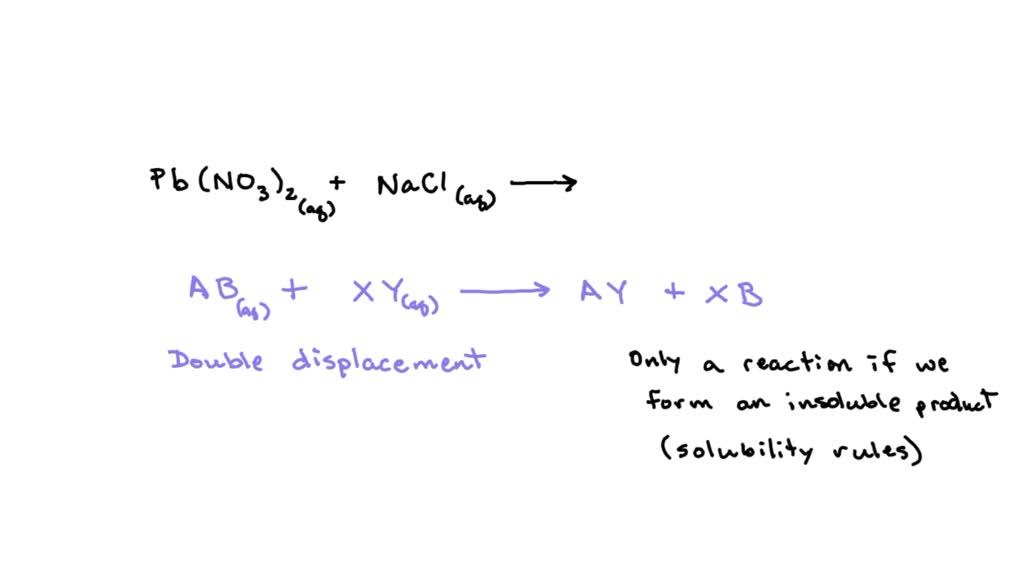 Pb(NO₃)₂(aq) + NaCl(aq) ⟶
AB(aq) + XY(aq) ⟶ AY + XB
Double displacement
Only a reaction if we
form an insoluble product
(solubility rules)